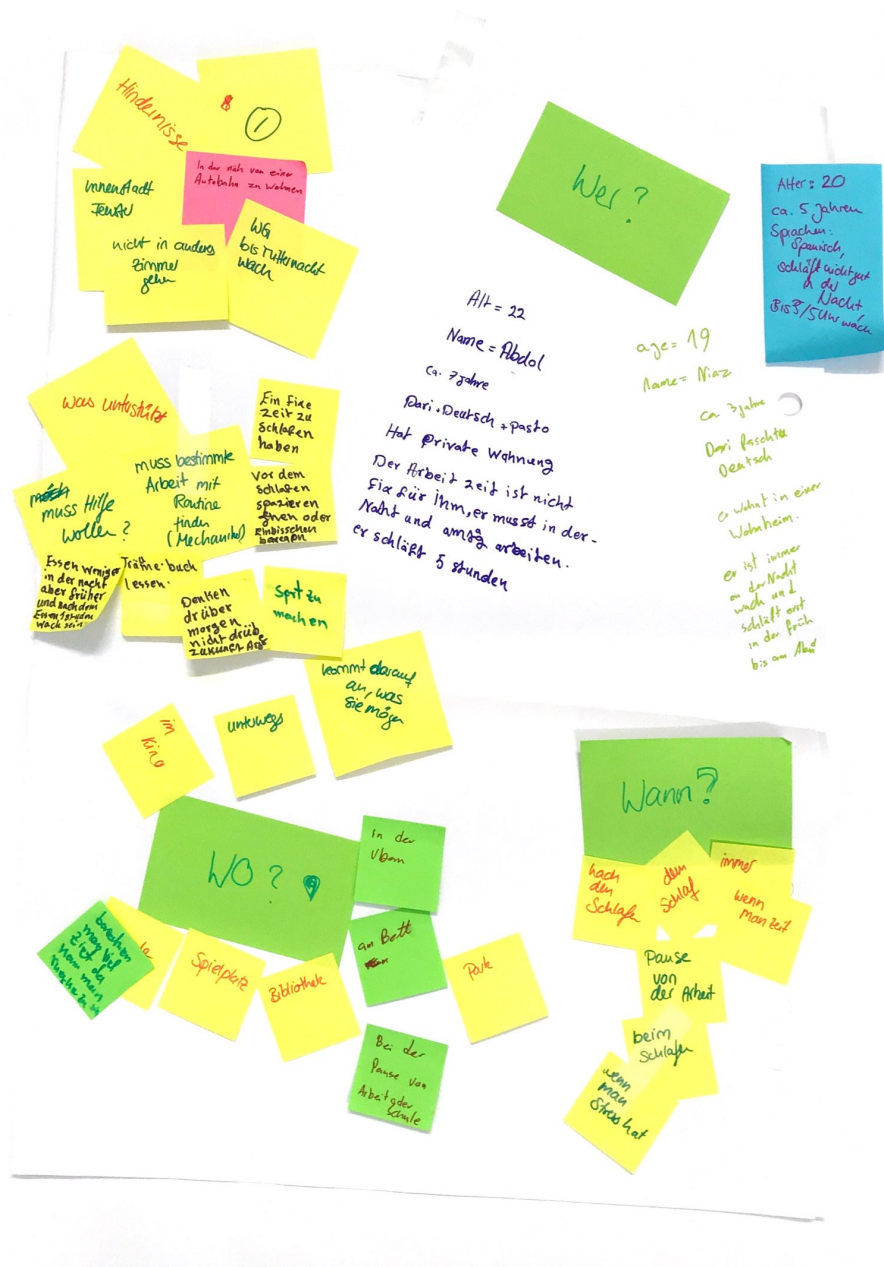 Hindernisse
1
In der näh von einer
Autobahn zu wohnen
innenstadt
nicht in anderes
zimmer
gehen
WG
bis Mitternacht
wach
Wer?
Alter: 20
ca. 5 Jahren
Sprachen:
Spanisch,
schläft nicht gut
in der
Nacht,
Alt = 22
Name = Abdol
ca. 7 jahre
Dari + Deutsch + Pasto
Hat private Wohnung
Der Arbeit zeit ist nicht
fix für ihm, er musst in der-
Naht und amtag arbeiten.
er schläft 5 stunden
age = 19
Name = Niaz
ca 3 jahre
Dari Paschtu
Deutsch
er wohnt in einer
Wohnheim.
er ist immer
an der Nacht
wach und
schläft erst
in der früh
bis am Abnd
was unterstützt
muss Hilfe
wollen?
muss bestimmte
Arbeit mit
Routine
finden
(Mechaniker)
Ein fixe
zeit zu
schlafen
haben
Vor dem
schlafen
spazieren
gehen oder
Einbisschen
bewegen
Essen weniger
in der nacht
aber früher
und nach dem
Essen 1 stunden
wack sein
buch
lessen.
Denken
drüber
morgen
nicht drüb
zukunft
Sprt zu
machen
kommt darauf
an, was
sie mögen
im
Kino
unterwegs
WO?
In der
Ubam
am Bett
Spielplatz
Bibliothek
Park
Bei der
Pause von
Arbeit oder
Schule
Wann?
nach
den
Schlafen
dem
Schlaf
immer
wenn
man zeit
Pause
von
der Arbeit
beim
Schlafen
wenn
man
Stress hat